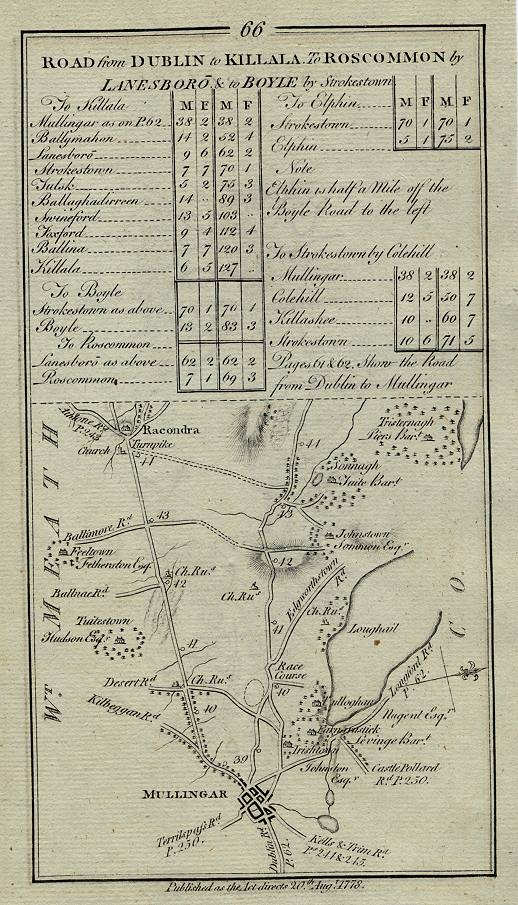 66
ROAD from DUBLIN to KILLALA. To ROSCOMMON by
LANESBORŌ, & to BOYLE by Strokestown
To Killala M F M F
Mullingar as on P. 62 38 2 38 2
Ballymahon 14 2 52 4
Lanesborō 9 6 62 2
Strokestown 7 7 70 1
Tulsk 5 2 75 3
Ballaghadirreen 14 .. 89 3
Swineford 13 5 103 ..
Foxford 9 4 112 4
Ballina 7 7 120 3
Killala 6 5 127 ..
To Boyle
Strokestown as above 70 1 70 1
Boyle 13 2 83 3
To Roscommon
Lanesborō as above 62 2 62 2
Roscommon 7 1 69 3
To Elphin M F M F
Strokestown 70 1 70 1
Elphin 5 1 75 2
Note
Elphin is half a Mile off the
Boyle Road to the left
To Strokestown by Colehill
Mullingar 38 2 38 2
Colehill 12 5 50 7
Killashee 10 .. 60 7
Strokestown 10 6 71 5
Pages 61 & 62, Show the Road
from Dublin to Mullingar
Athlone Rd
P. 243
Racondra
Turnpike
Church
44
44
Tristernagh
Piers Bart.
Sonnagh
Tuite Bart.
43
43
Ballimore Rd
Feeltown
Fetherston Esqr.
Johnstown
Sommion Esqr.
42
Ch. Rus.
42
Ballnac Rd
Ch. Rus
Edgworthstown
Rd
Ch. Rus.
Tuitestown
Hudson Esqr.
41
41
Loughail
Wt. MEATH
CO.
Race
Course
40
Desert Rd
Ch. Rus.
40
Kilbeggan Rd
Longford Rd
P. 62.
Culloghan
Nugent Esqr.
Barnardstick
Levinge Bart.
Irishtown
Johnston
Esqr.
Castle Pollard
Rd. P. 250.
39
MULLINGAR
Territspass Rd
P. 250.
Dublin Rd
P. 62.
Kells & Trim Rd
Ps. 244 & 245.
Published as the Act directs 20.th Augt. 1778.